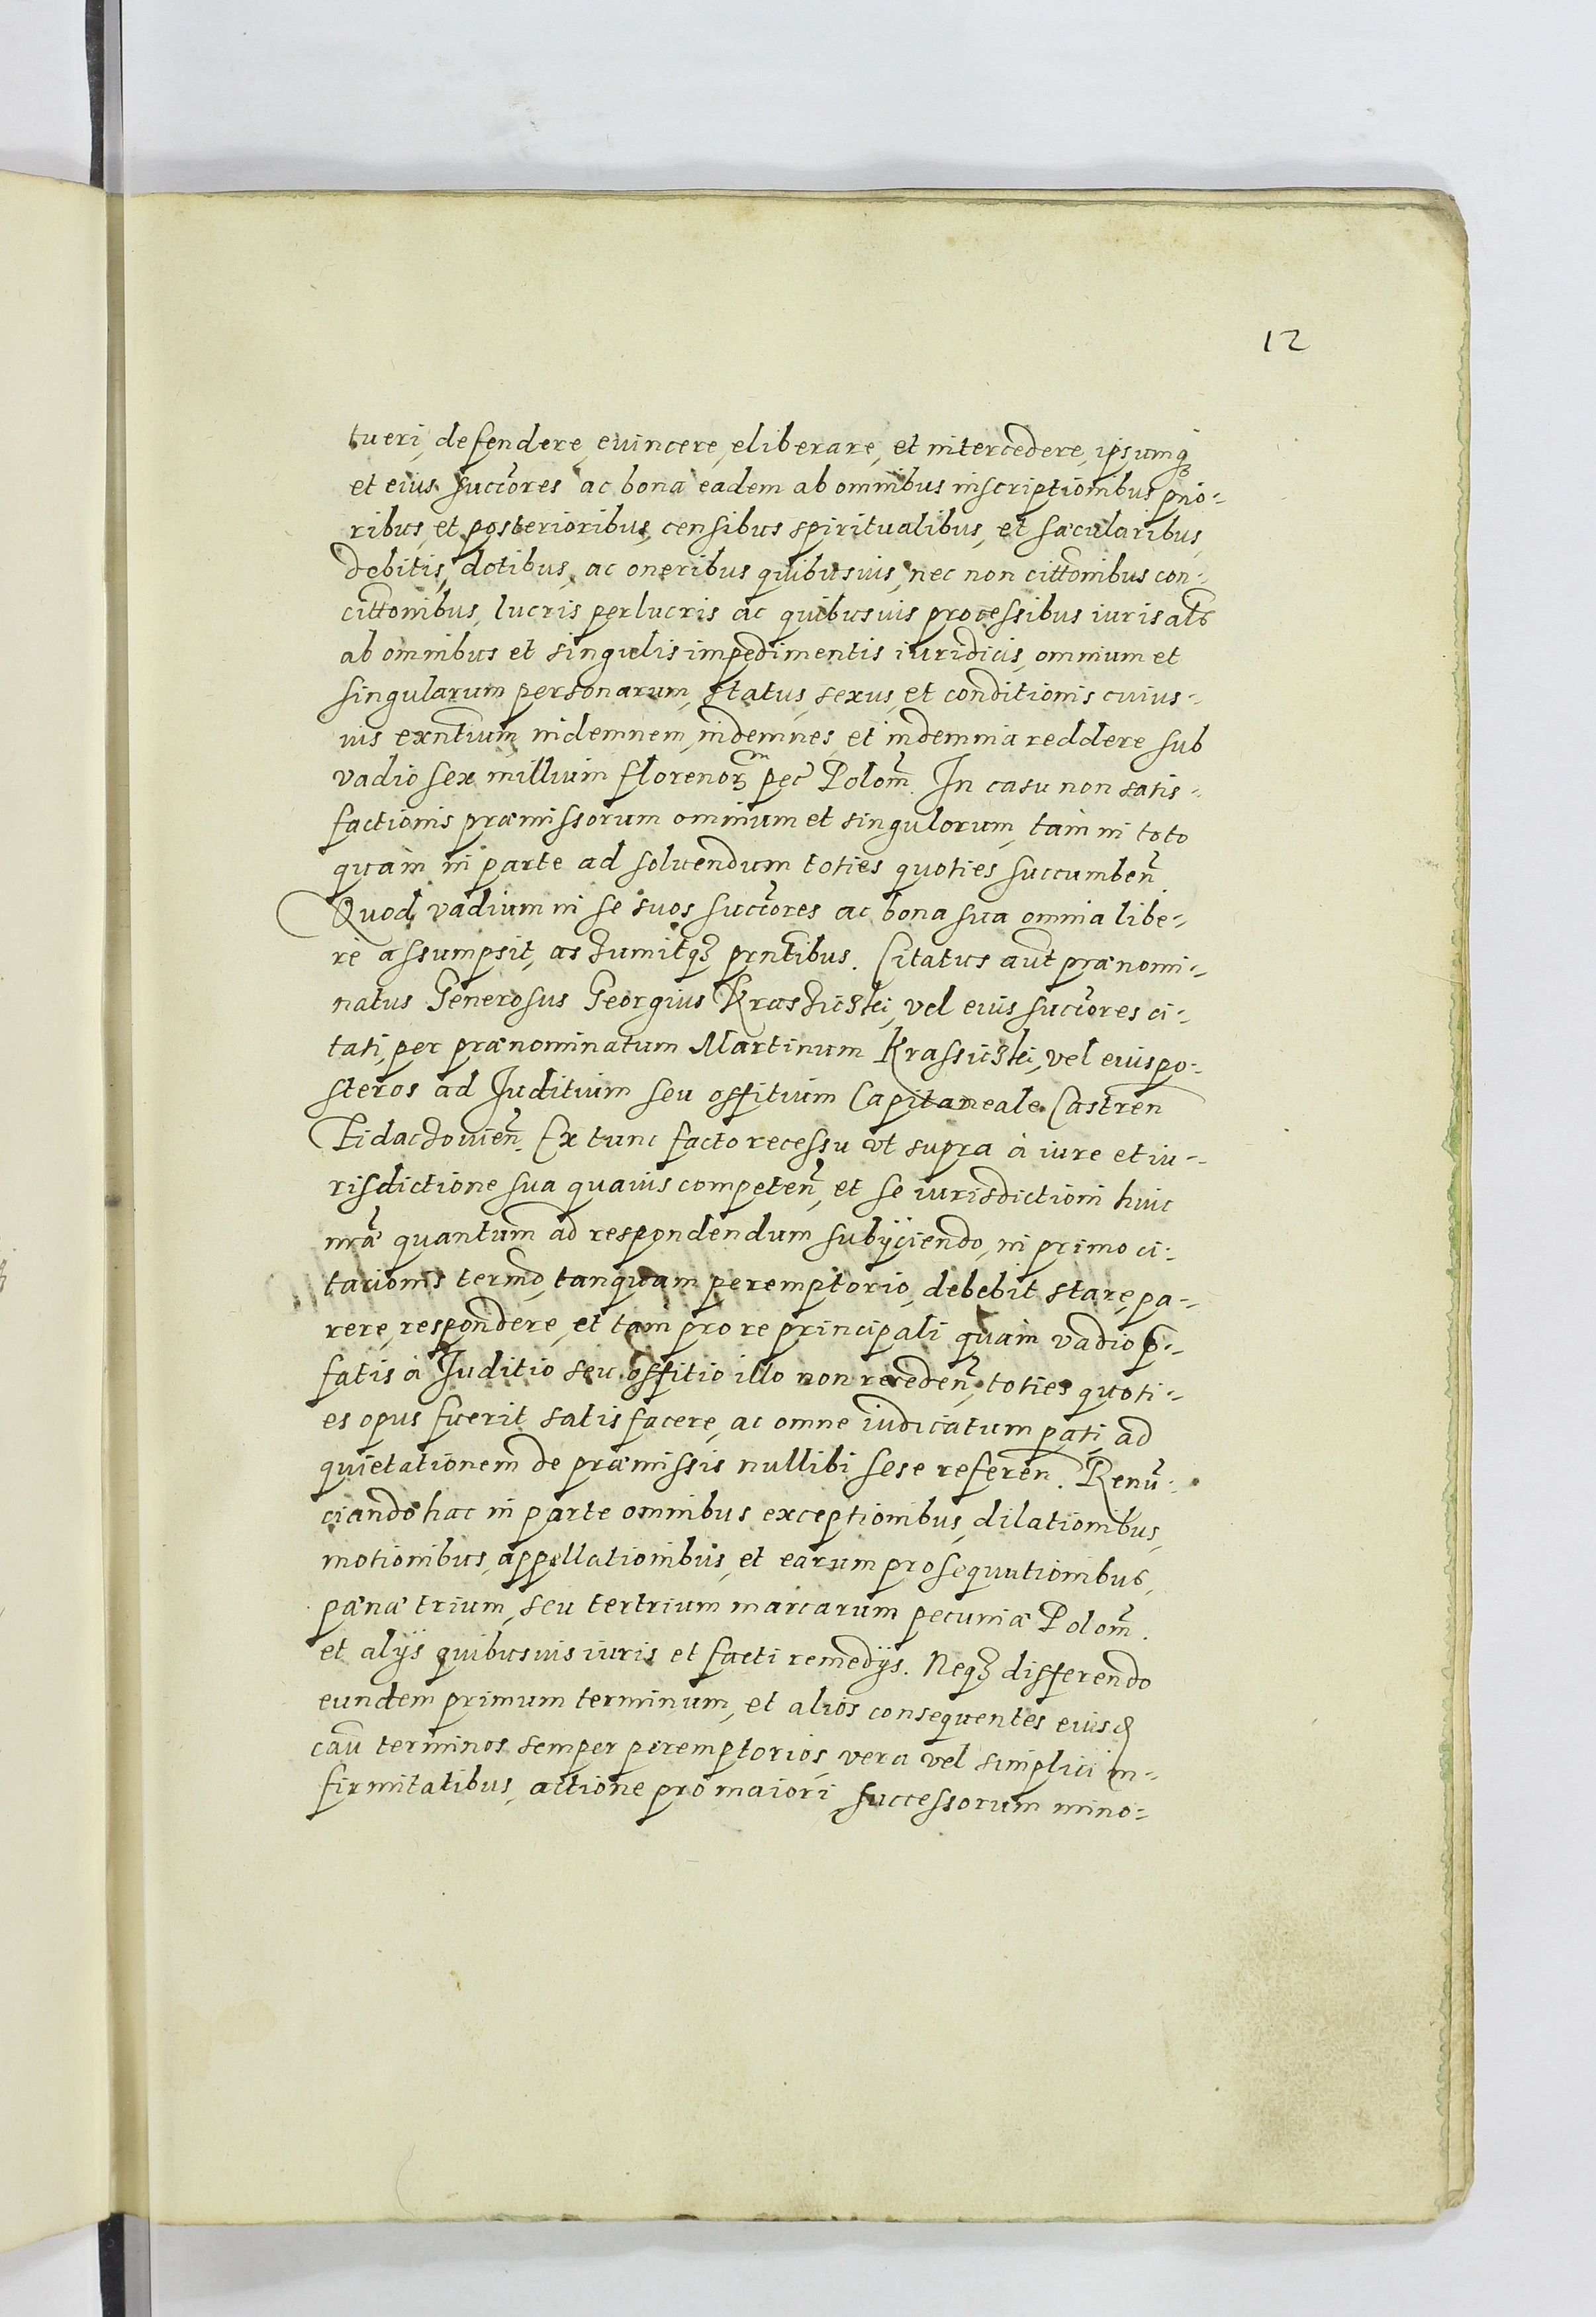 12
tueri, defendere, euincere, eliberare, et intercedere, ipsumq3
et eius succ̃ores ac bona eadem ab omnibus inscriptionibus prio=
ribus, et posterioribus, censibus spiritualibus, et sæcularibus,
debitis, dotibus, ac oneribus quibusuis, nec non citt̃onibus con=
citt̃onibus, lucris perlucris ac quibusuis processibus iuris al̃s
ab omnibus et singulis impedimentis iuridicis, omnium et
singularum personarum, status, sexus, et conditionis cuius=
uis exñtium, indemnem, indemnes, et indemnia reddere sub
vadio sex millium florenor̃ pec̃ Polom̃. In casu non satis=
factionis præmissorum omnium et singulorum, tam in toto
quam in parte ad soluendum toties quoties succumbeñ.
Quod vadium in se suos succ̃ores ac bona sua omnia libe=
rè assumpsit, assumitq3 prñtibus. Citatus aut̃ prænomi=
natus Generosus Georgius Krassicski, vel eius succ̃ores ci=
tati, per prænominatum Martinum Krassicski, vel eius po=
steros ad Juditium seu offitium Capitaneale Castreñ
Ex tunc facto recessu vt supra à iure et iu=
risdictione sua quauis competeñ, et se iurisdictioni huic
nr̃æ quantum ad respondendum subijciendo, in primo ci=
tationis termõ, tanquam peremptorio, debebit stare, pa=
rere, respondere, et tam pro re principali quam vadio p̃=
fatis à Juditio seu offitio illo non recedeñ, toties quoti=
es opus fuerit satisfacere, ac omne iudicatum pati, ad
quietationem de præmissis nullibi sese refereñ. Renũ=
ciando hac in parte omnibus exceptionibus, dilationibus,
motionibus, appellationibus, et earum prosequutionibus,
pænæ trium, seu ter trium marcarum pecuniæ Polom̃.
et alijs quibusuis iuris et facti remedijs. Neq3 differendo
eundem primum terminum, et alios consequentes eiusd̃
caũ terminos semper peremptorios, vera vel simplici in=
firmitatibus, attione pro maiori, successorum mino=